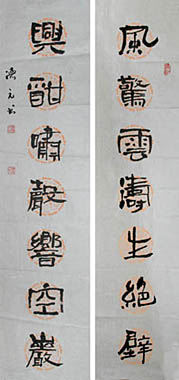 風驚雲濤生絕壁
興酣嘯聲響空巖